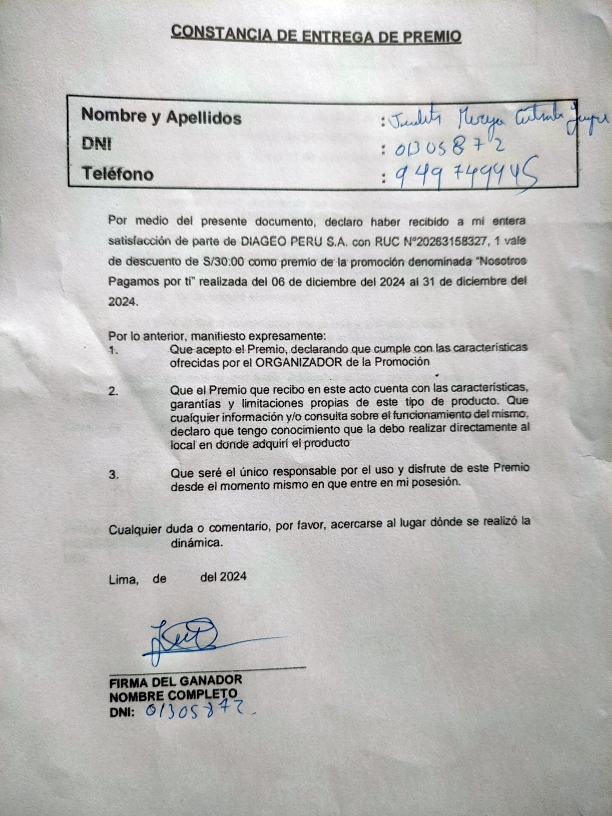 CONSTANCIA DE ENTREGA DE PREMIO
Nombre y Apellidos : Judith
DNI : 01305872
Teléfono : 949749945
Por medio del presente documento, declaro haber recibido a mi entera
satisfacción de parte de DIAGEO PERU S.A. con RUC N°20263158327, 1 vale
de descuento de S/30:00 como premio de la promoción denominada "Nosotros
Pagamos por ti" realizada del 06 de diciembre del 2024 al 31 de diciembre del
2024.
Por lo anterior, manifiesto expresamente:
1. Que acepto el Premio, declarando que cumple con las características
ofrecidas por el ORGANIZADOR de la Promoción
2. Que el Premio que recibo en este acto cuenta con las características,
garantías y limitaciones propias de este tipo de producto. Que
cualquier información y/o consulta sobre el funcionamiento del mismo,
declaro que tengo conocimiento que la debo realizar directamente al
local en donde adquirí el producto
3. Que seré el único responsable por el uso y disfrute de este Premio
desde el momento mismo en que entre en mi posesión.
Cualquier duda o comentario, por favor, acercarse al lugar dónde se realizó la
dinámica.
Lima, de del 2024
FIRMA DEL GANADOR
NOMBRE COMPLETO
DNI: 01305872